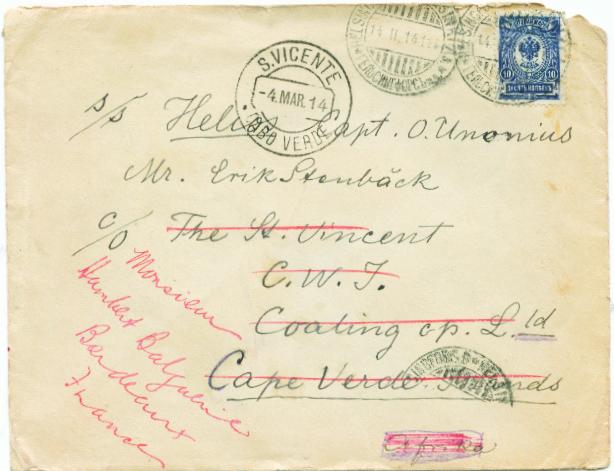 S. VICENTE
-4. MAR. 14
CABO VERDE
14. II. 14
10 10
s/s Helios Capt. O. Unonius
Mr. Erik Stenbäck
c/o The St. Vincent
C. W. I.
Coaling op. L. td
Cape Verde Islands
Afrika
Monsieur
Humbert Balguerie
Bordeaux
France